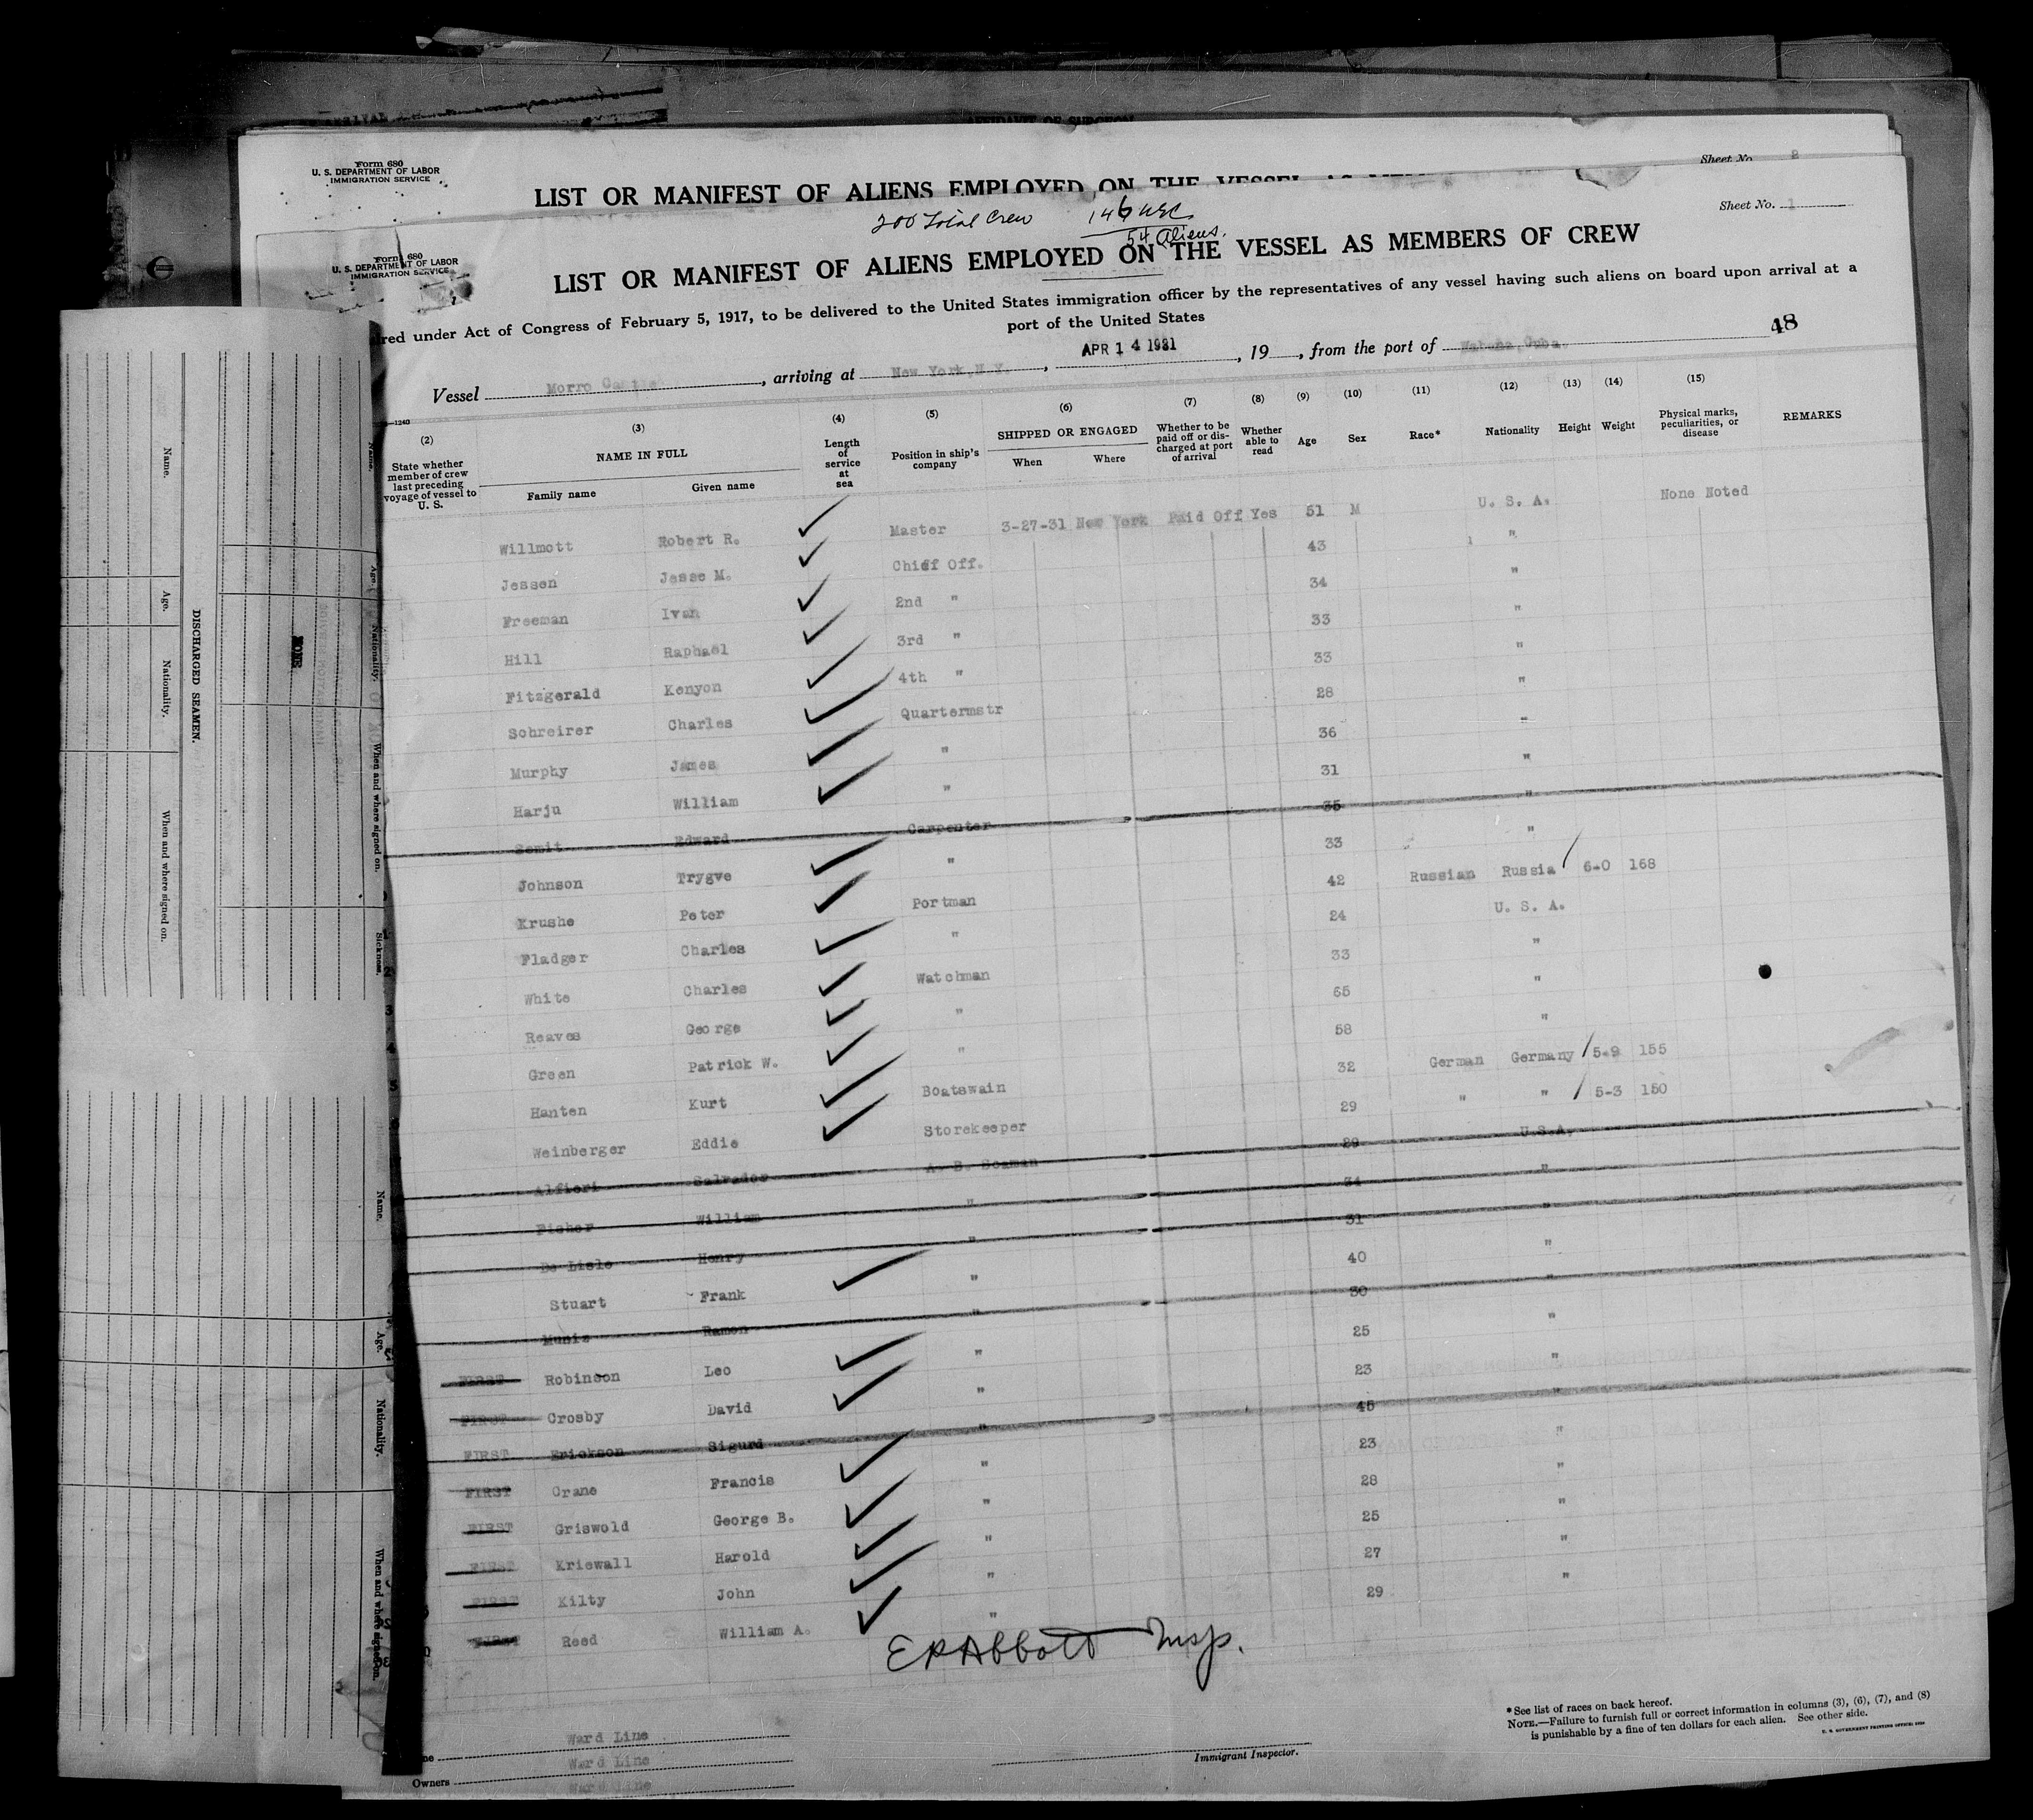 Form 680
U. S. DEPARTMENT OF LABOR
IMMIGRATION SERVICE
Sheet No. 2
LIST OR MANIFEST OF ALIENS EMPLOYED ON THE VESSEL AS
200 Total Crew 146 USC
54 Aliens.
Sheet No. 1
Form 680
U. S. DEPARTMENT OF LABOR
IMMIGRATION SERVICE
LIST OR MANIFEST OF ALIENS EMPLOYED ON THE VESSEL AS MEMBERS OF CREW
red under Act of Congress of February 5, 1917, to be delivered to the United States immigration officer by the representatives of any vessel having such aliens on board upon arrival at a
port of the United States
48
Vessel Morro Castle, arriving at New York, N.Y., APR 14 1931, 19, from the port of Habana, Cuba.
(2) State whether member of crew last preceding voyage of vessel to U. S.
(3) NAME IN FULL Family name Given name
(4) Length of service at sea
(5) Position in ship's company
(6) SHIPPED OR ENGAGED When Where
(7) Whether to be paid off or discharged at port of arrival
(8) Whether able to read
(9) Age
(10) Sex
(11) Race*
(12) Nationality
(13) Height
(14) Weight
(15) Physical marks, peculiarities, or disease
REMARKS
Willmott Robert R. Master 3-27-31 New York Paid Off Yes 51 M U. S. A. None Noted
Jessen Jesse M. Chief Off. 43 "
Freeman Ivan 2nd " 34 "
Hill Raphael 3rd " 33 "
Fitzgerald Kenyon 4th " 33 "
Schreirer Charles Quartermstr 28 "
Murphy James " 36 "
Harju William " 31 "
Semit Edward Carpenter 35 "
Johnson Trygve " 33 "
Krushe Peter Portman 42 Russian Russia 6-0 168
Fladger Charles " 24 U. S. A.
White Charles Watchman 33 "
Reaves George " 65 "
Green Patrick W. " 58 "
Hanten Kurt Boatswain 32 German Germany 5-9 155
Weinberger Eddie Storekeeper 29 " " 5-3 150
Alfieri Salvador A. B. Seaman 29 U.S.A.
Fisher William " 34 "
De Lisle Henry " 31 "
Stuart Frank " 40 "
Muniz Ramon " 30 "
FIRST Robinson Leo " 25 "
FIRST Crosby David " 23 "
FIRST Erickson Sigurd " 45 "
FIRST Crane Francis " 23 "
FIRST Griswold George B. " 28 "
FIRST Kriewall Harold " 25 "
FIRST Kilty John " 27 "
FIRST Reed William A. " 29 "
E R Abbott Insp.
Ward Line
Ward Line
Owners Ward Line
Immigrant Inspector.
* See list of races on back hereof.
NOTE.—Failure to furnish full or correct information in columns (3), (6), (7), and (8)
is punishable by a fine of ten dollars for each alien. See other side.
DISCHARGED SEAMEN.
Name.
Age.
Nationality.
When and where signed on.
NONE
Name.
Age.
Nationality.
When and where signed on.
Sickness.
Name.
Age.
Nationality.
When and where signed on.